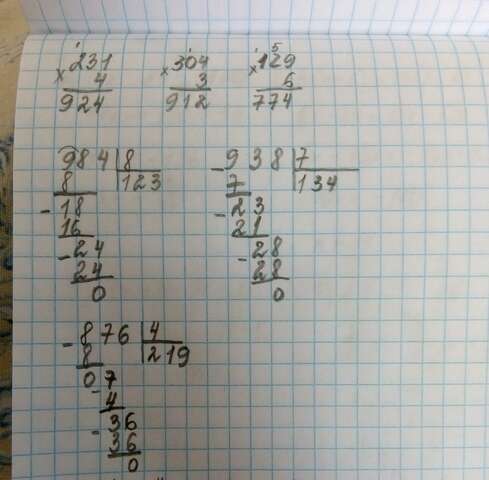 1 1 15
231 304 129
× 4 × 3 × 6
924 912 774
984 | 8 - 938 | 7
8 123 7 134
- 18 - 23
16 21
- 24 - 28
24 28
0 0
- 876 | 4
8 219
07
- 4
- 36
36
0